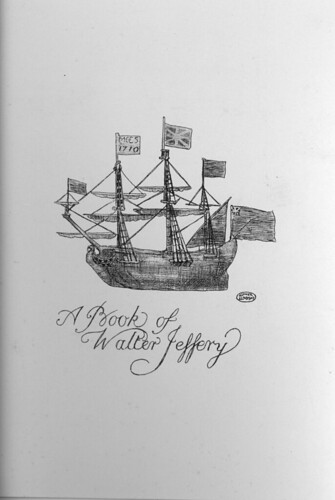 1710
A Book of
Walter Jeffery